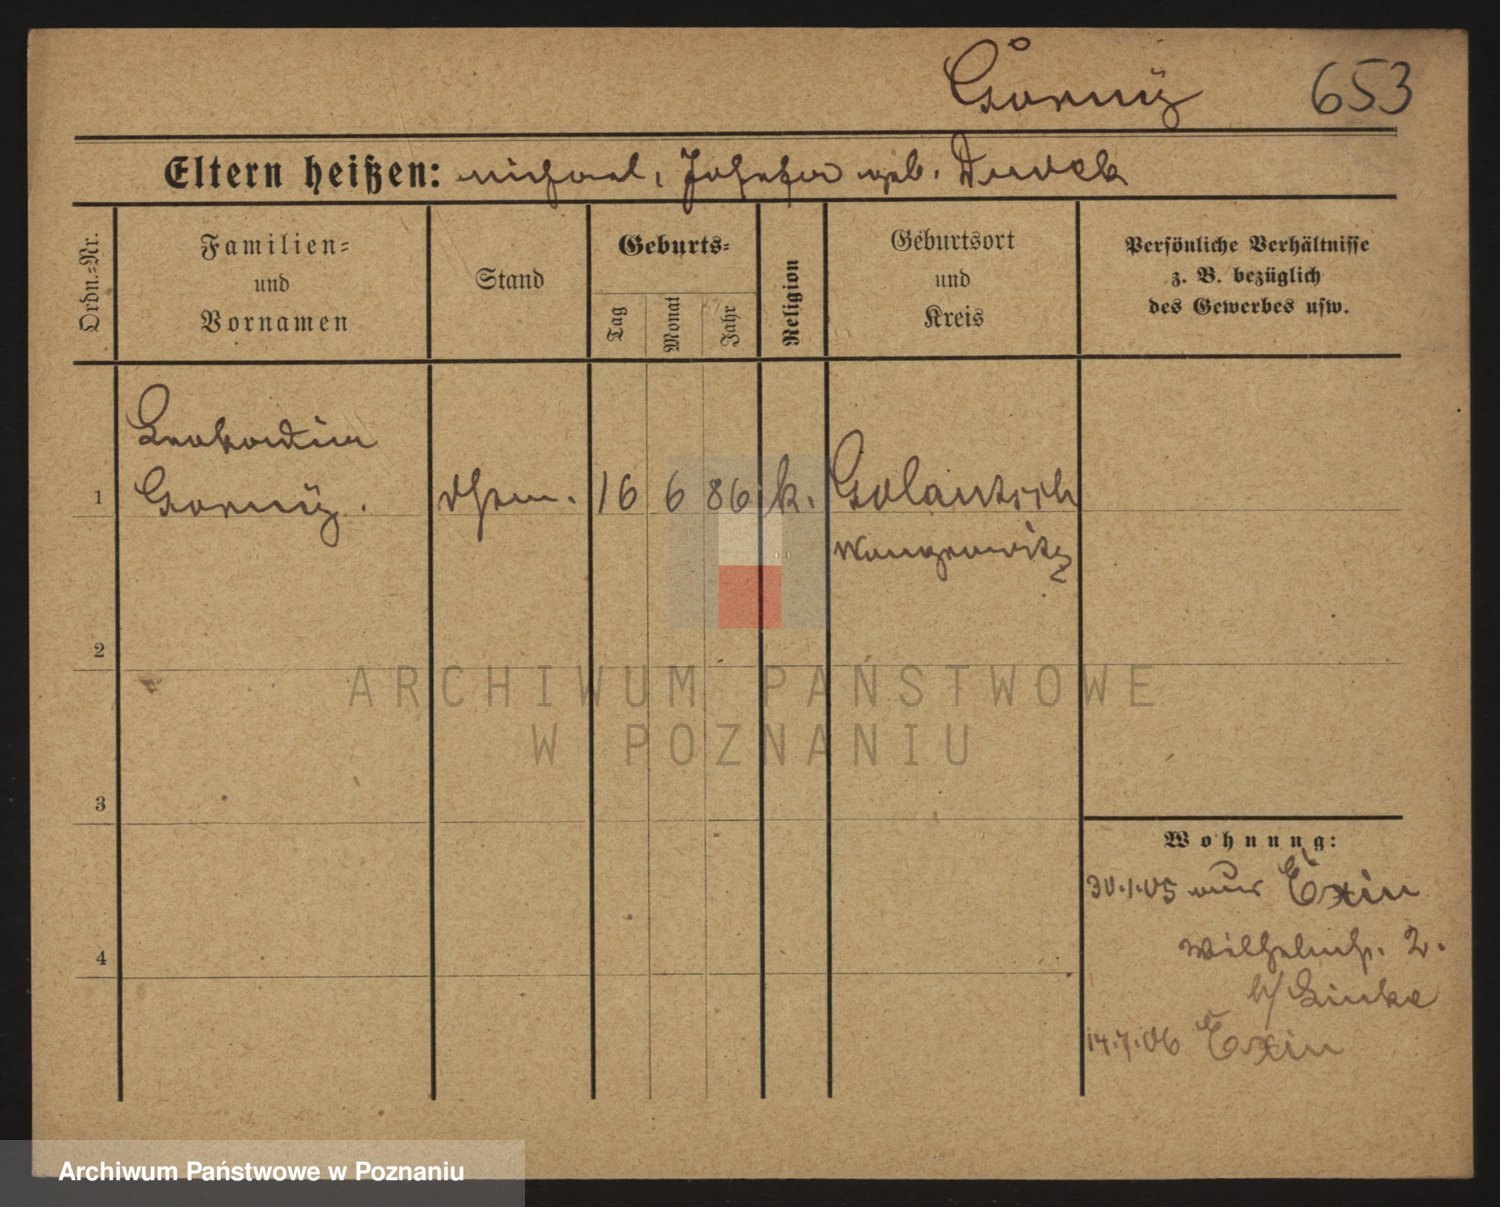 Górny 653
Eltern heißen: Michael, Josefa geb.
Ordn.=Nr.
Familien=
und
Vornamen
Stand
Geburts=
Tag
Monat
Jahr
Religion
Geburtsort
und
Kreis
Persönliche Verhältnisse
z. B. bezüglich
des Gewerbes usw.
Leokardia
1 Gorny. 16 6 86 k. Golantsch
Wongrowitz
2
ARCHIWUM PAŃSTWOWE
W POZNANIU
3
Wohnung:
30.1.05 aus Exin
Wilhelmstr. 2.
b/ Linke
4
14.7.06 Exin
Archiwum Państwowe w Poznaniu